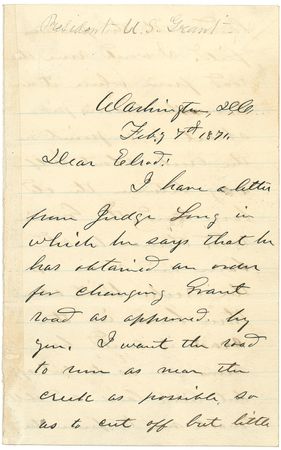 President U. S. Grant
Washington, D.C.
Feb.y 7th 1871.
Dear Elrod:
I have a letter
from Judge Long in
which he says that he
has obtained an order
for changing Grant
road as approved by
you. I want the road
to run as near the
creek as possible, so
as to cut off but little